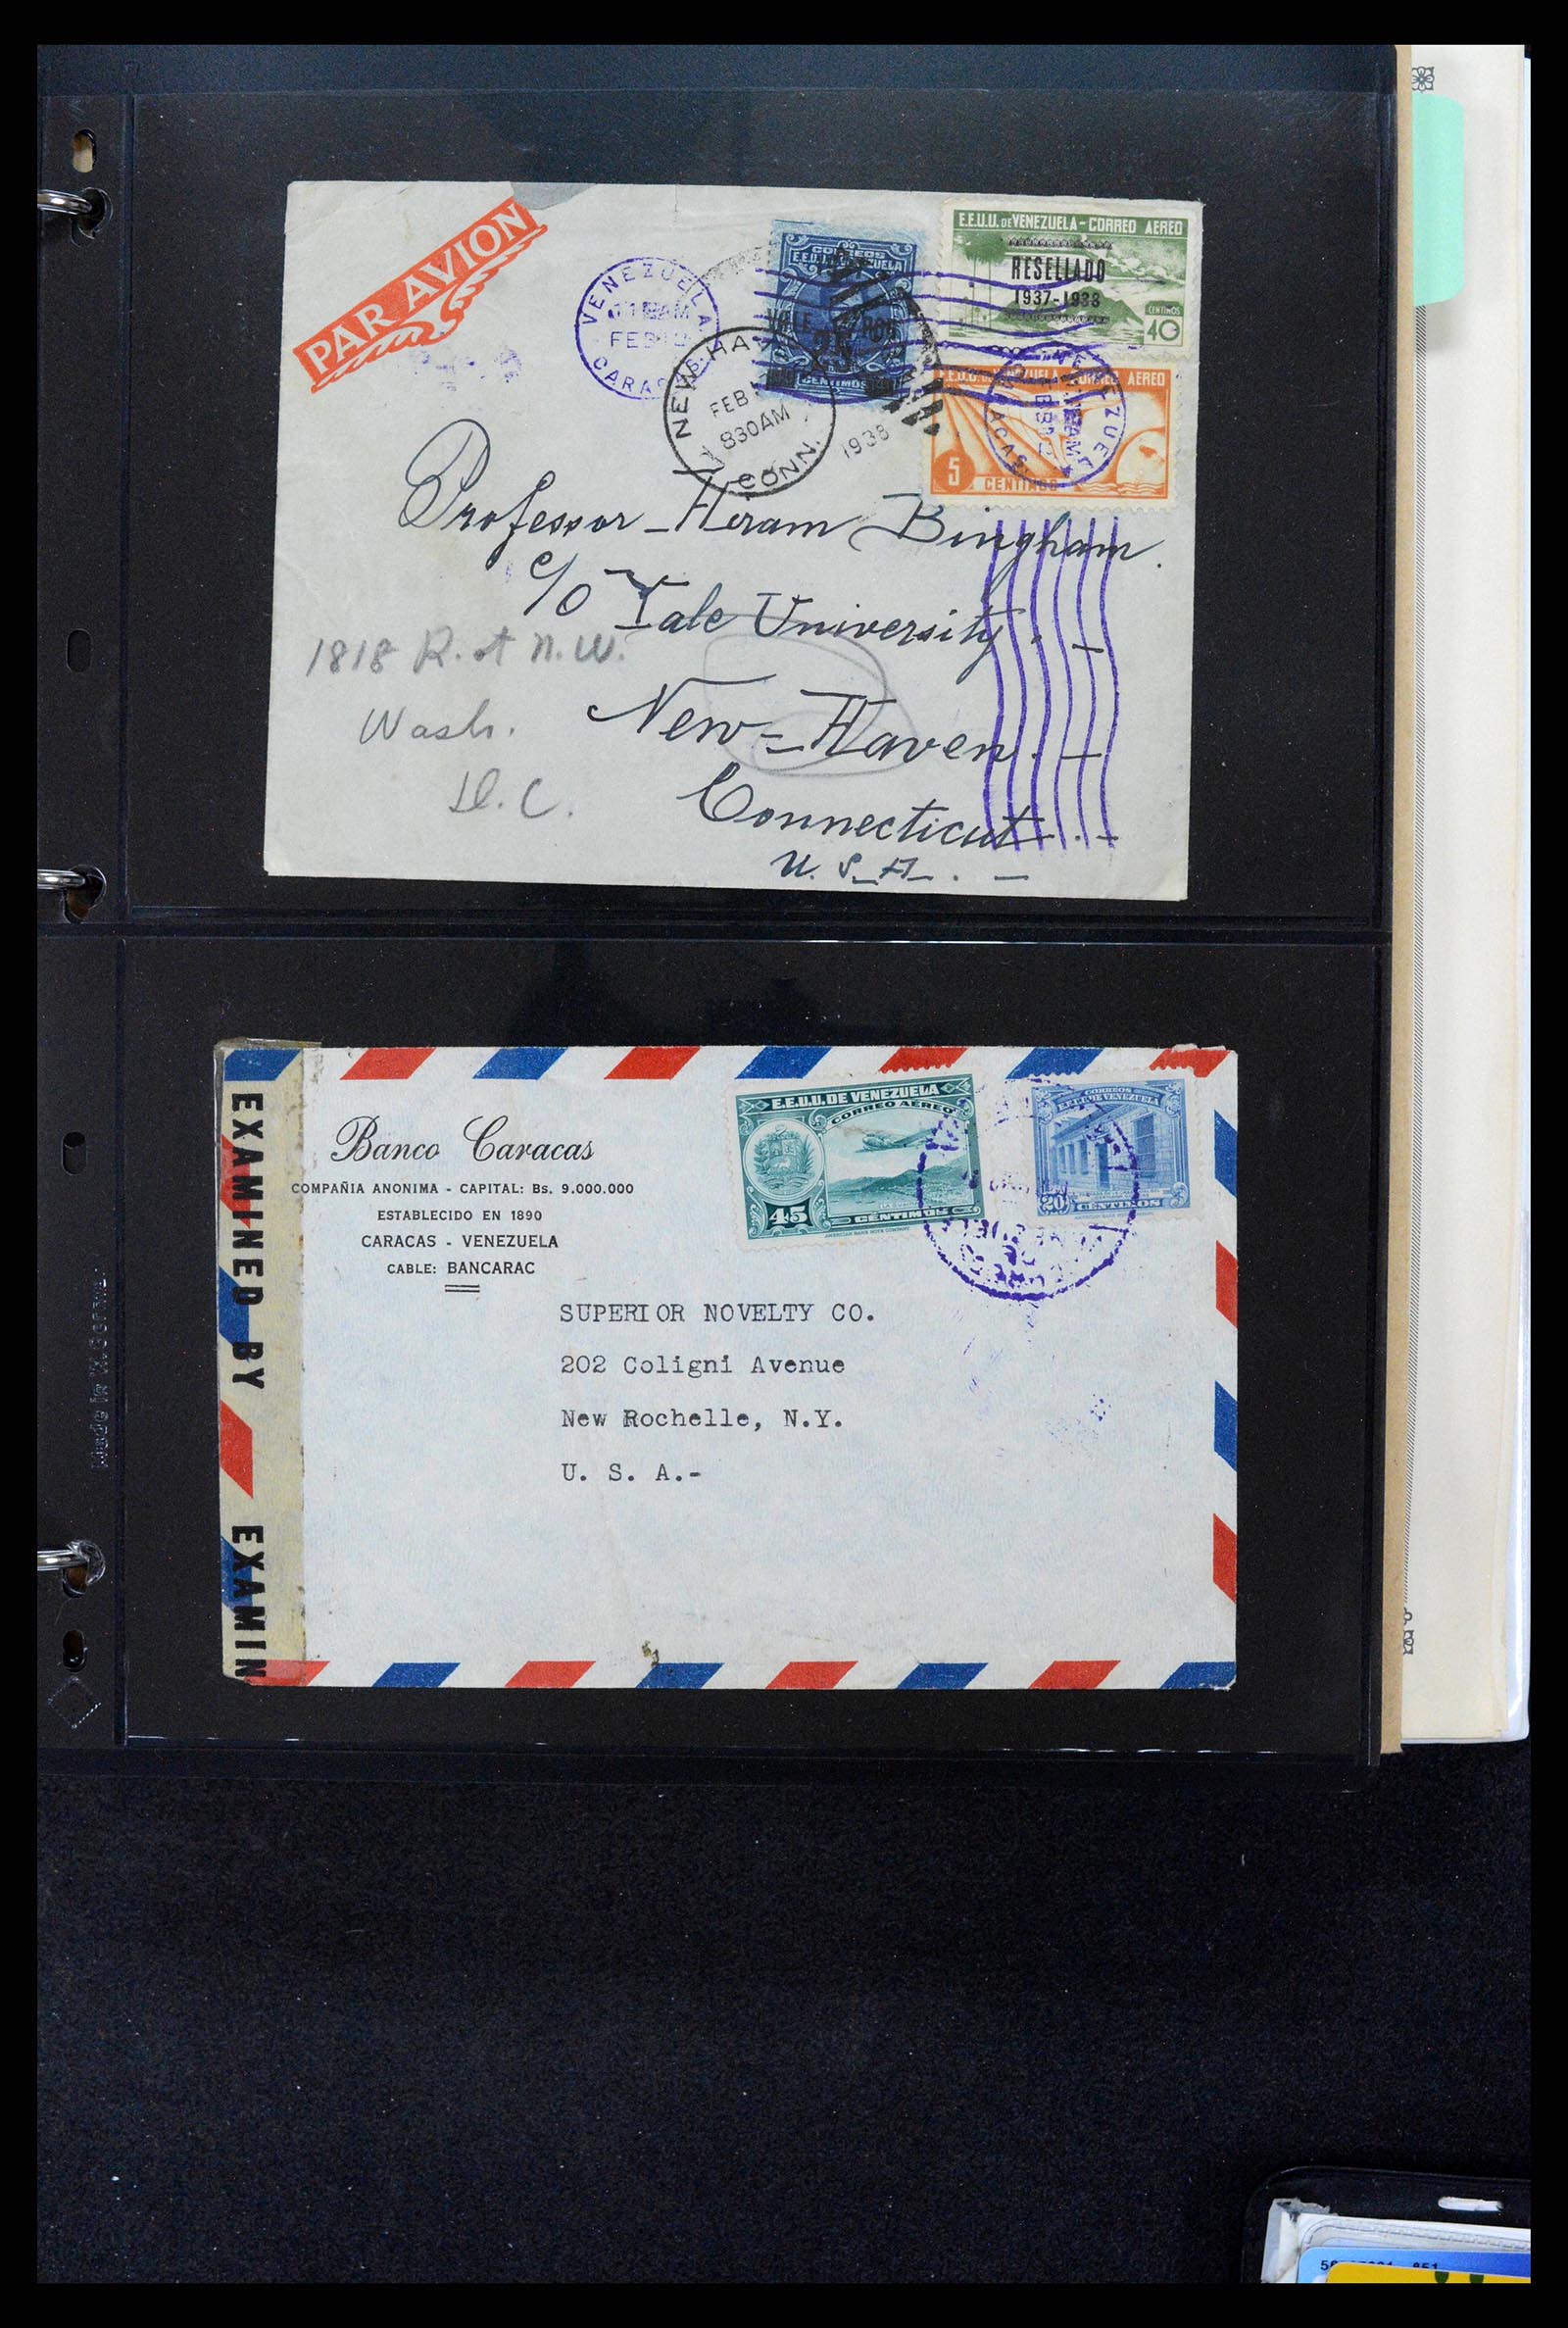 PAR AVION
VENEZUELA
FEB 12
CARACAS
CORREOS
E.E.U.U. DE VENEZUELA
VALE POR
25
CENTIMOS
E.E.U.U. DE VENEZUELA - CORREO AEREO
RESELLADO
1937-1938
CENTIMOS
40
E.E.U.U. DE VENEZUELA CORREO AEREO
5 CENTIMOS
NEW HAVEN
FEB
830AM
1938
CONN.
Professor - Hiram Bingham.
c/o Yale University. -
New - Haven. -
Connecticut. -
U. S. A. -
1818 R. St N.W.
Wash.
D.C.
EXAMINED BY
EXAMIN
Banco Caracas
COMPAÑIA ANONIMA - CAPITAL: Bs. 9.000.000
ESTABLECIDO EN 1890
CARACAS - VENEZUELA
CABLE: BANCARAC
E.E.U.U. DE VENEZUELA
CORREO AEREO
45 CENTIMOS
CORREOS
E.E.U.U. DE VENEZUELA
20 CENTIMOS
SUPERIOR NOVELTY CO.
202 Coligni Avenue
New Rochelle, N.Y.
U. S. A.-
Made in W. Germany